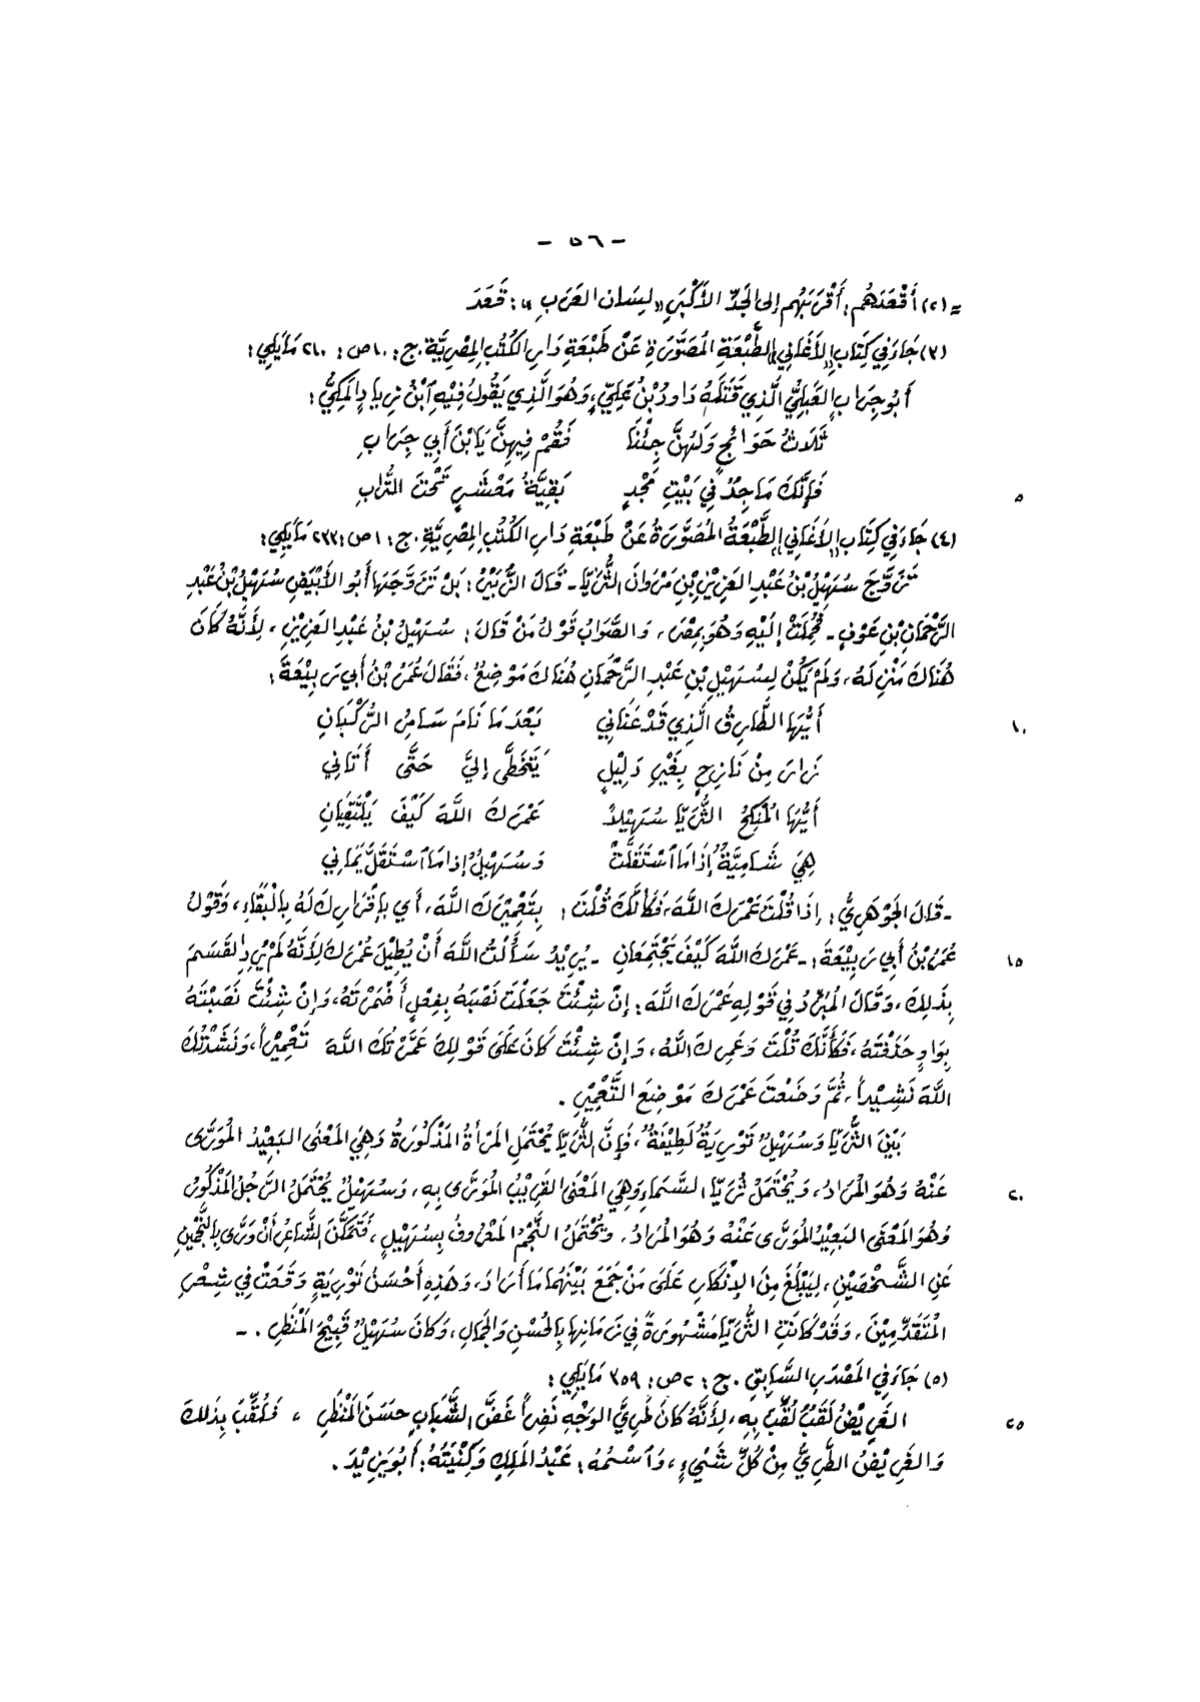 - ٥٦ -
= (٢) أَقْعَدَهُم: أَقْرَبَهُم إلى الجَدِّ الأَكْبَرِ «لِسَان العَرَبِ»: قَعَدَ
(٣) جَاءَ فِي كِتَابِ «الأَغَانِي» الطَّبْعَةِ المُصَوَّرَةِ عَنْ طَبْعَةِ دَارِ الكُتُبِ المِصْرِيَّةِ. ج: ١. ص: ٢١٠ مَا يَلِي:
أَبُو جِرَابٍ العَبَلِيُّ الَّذِي قَتَلَهُ دَاوُدُ بْنُ عَلِيٍّ، وَهُوَ الَّذِي يَقُولُ فِيْهِ ٱبْنُ زِيادٍ المَكِّيُّ:
ثَلَاثُ حَوَائِجٍ وَلَهُنَّ جِئْنَا فَقُمْ فِيهِنَّ يَا بْنَ أَبِي جِرَابِ
فَإِنَّكَ مَاجِدٌ فِي بَيْتِ مَجْدٍ بَقِيَّةُ مَعْشَرٍ تَحْتَ التُّرَابِ
٥
(٤) جَاءَ فِي كِتَابِ «الأَغَانِي» الطَّبْعَةُ المُصَوَّرَةُ عَنْ طَبْعَةِ دَارِ الكُتُبِ المِصْرِيَّةِ. ج: ١ ص: ٢٣٣ مَا يَلِي:
تَزَوَّجَ سُهَيْلُ بْنُ عَبْدِ العَزِيْزِ بْنِ مَرْوَانَ الثُّرَيَّا - قَالَ الزُّبَيْرُ: بَلْ تَزَوَّجَهَا أَبُو الأَبْيَضِ سُهَيْلُ بْنُ عَبْدِ
الرَّحْمَانِ بْنِ عَوْفٍ - فَحُمِلَتْ إِلَيْهِ وَهُوَ بِمِصْرَ، وَالصَّوَابُ قَوْلُ مَنْ قَالَ: سُهَيْلُ بْنُ عَبْدِ العَزِيْزِ، لِأَنَّهُ كَانَ
هُنَاكَ مَنْزِلُهُ، وَلَمْ يَكُنْ لِسُهَيْلِ بْنِ عَبْدِ الرَّحْمَانِ هُنَاكَ مَوْضِعٌ، فَقَالَ عُمَرُ بْنُ أَبِي رَبِيْعَةَ:
أَيُّهَا الطَّارِقُ الَّذِي قَدْ عَنَانِي بَعْدَ مَا نَامَ سَامِرُ الرُّكْبَانِ
١٠
زَارَ مِنْ نَازِحٍ بِغَيْرِ دَلِيْلٍ يَتَخَطَّى إِلَيَّ حَتَّى أَتَانِي
أَيُّهَا المُنْكِحُ الثُّرَيَّا سُهَيْلاً عَمْرَكَ اللَّهَ كَيْفَ يَلْتَقِيَانِ
هِيَ شَامِيَّةٌ إِذَا مَا ٱسْتَقَلَّتْ وَسُهَيْلٌ إِذا مَا ٱسْتَقَلَّ يَمَانِي
- قَالَ الجَوْهَرِيُّ: إِذَا قُلْتَ عَمْرَكَ اللَّهَ، فَكَأَنَّكَ قُلْتَ: بِتَعْمِيْرِكَ اللَّهَ، أَي بِإِقْرَارِكَ لَهُ بِالْبَقَاءِ، وَقَوْلُ
عُمَرُ بْنُ أَبِي رَبِيْعَةَ: - عَمْرَكَ اللَّهَ كَيْفَ يَجْتَمِعَانِ - يُرِيْدُ سَأَلْتُ اللَّهَ أَنْ يُطِيْلَ عُمْرَكَ لِأَنَّهُ لَمْ يُرِدِ القَسَمَ
١٥
بِذَلِكَ، وَقَالَ المُبَرِّدُ فِي قَوْلِهِ عَمْرَكَ اللَّهَ: إِنْ شِئْتَ جَعَلْتَ نَصْبَهُ بِفِعْلٍ أَضْمَرْتَهُ، وَإِنْ شِئْتَ نَصَبْتَهُ
بِوَاوٍ حَذَفْتَهُ، فَكَأَنَّكَ قُلْتَ وَعَمْرِكَ اللَّهَ، وَإِنْ شِئْتَ كَانَ عَلَى قَوْلِكَ عَمَّرْتُكَ اللَّهَ تَعْمِيْراً، وَنَشَدْتُكَ
اللَّهَ نَشِيْداً، ثُمَّ وَضَعْتَ عَمْرَكَ مَوْضِعَ التَّعْمِيْرِ.
بَيْنَ الثُّرَيَّا وَسُهَيْلٍ تَوْرِيَةٌ لَطِيْفَةٌ، فَإِنَّ الثُّرَيَّا يُحْتَمَلُ المَرْأَةُ المَذْكُورَةُ وَهِيَ المَعْنَى البَعِيْدُ المُوَرَّى
عَنْهُ وَهُوَ المُرَادُ، وَيُحْتَمَلُ ثُرَيَّا السَّمَاءِ وَهِيَ المَعْنَى القَرِيْبُ المُوَرَّى بِهِ، وَسُهَيْلٌ يُحْتَمَلُ الرَّجُلُ المَذْكُورُ
٢٠
وَهُوَ المَعْنَى البَعِيْدُ المُوَرَّى عَنْهُ وَهُوَ المُرَادُ، وَيُحْتَمَلُ النَّجْمُ المَعْرُوفُ بِسُهَيْلٍ، فَتَمَكَّنَ الشَّاعِرُ أَنْ وَرَّى بِالنَّجْمَيْنِ
عَنِ الشَّخْصَيْنِ، لِيَبْلُغَ مِنَ الإِنْكَارِ عَلَى مَنْ جَمَعَ بَيْنَهُمَا مَا أَرَادَ، وَهَذِهِ أَحْسَنُ تَوْرِيَةٍ وَقَعَتْ فِي شِعْرِ
المُتَقَدِّمِيْنَ، وَقَدْ كَانَتِ الثُّرَيَّا مَشْهُورَةً فِي زَمَانِهَا بِالحُسْنِ وَالجَمَالِ، وَكَانَ سُهَيْلٌ قَبِيْحَ المَنْظَرِ. -
(٥) جَاءَ فِي المَصْدَرِ السَّابِقِ. ج: ٢ ص: ٣٥٩ مَا يَلِي:
الغَرِيْضُ لَقَبٌ لُقِّبَ بِهِ، لِأَنَّهُ كَانَ طَرِيَّ الوَجْهِ نَضِراً غَضَّ الشَّبَابِ حَسَنَ المَنْظَرِ، فَلُقِّبَ بِذَلِكَ
٢٥
وَالغَرِيْضُ الطَّرِيُّ مِنْ كُلِّ شَيْءٍ، وَٱسْمُهُ: عَبْدُ المَلِكِ وَكُنْيَتُهُ: أَبُو يَزِيْدَ.